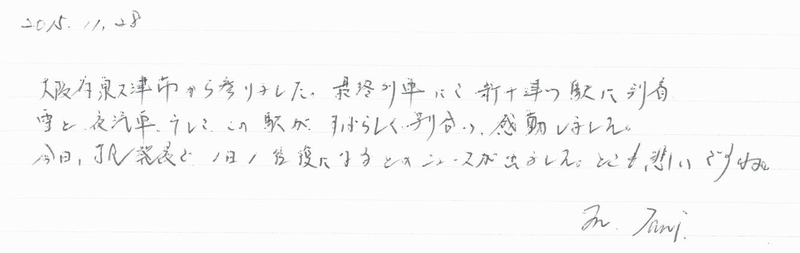 2015.11.28
大阪府泉大津市から参りました。最終列車にて新十津川駅に到着
雪と夜汽車、そしてこの駅がすばらしく、感動しました。
今日、JR発表で1日1往復になるとのニュースが出ました。とても悲しいですね